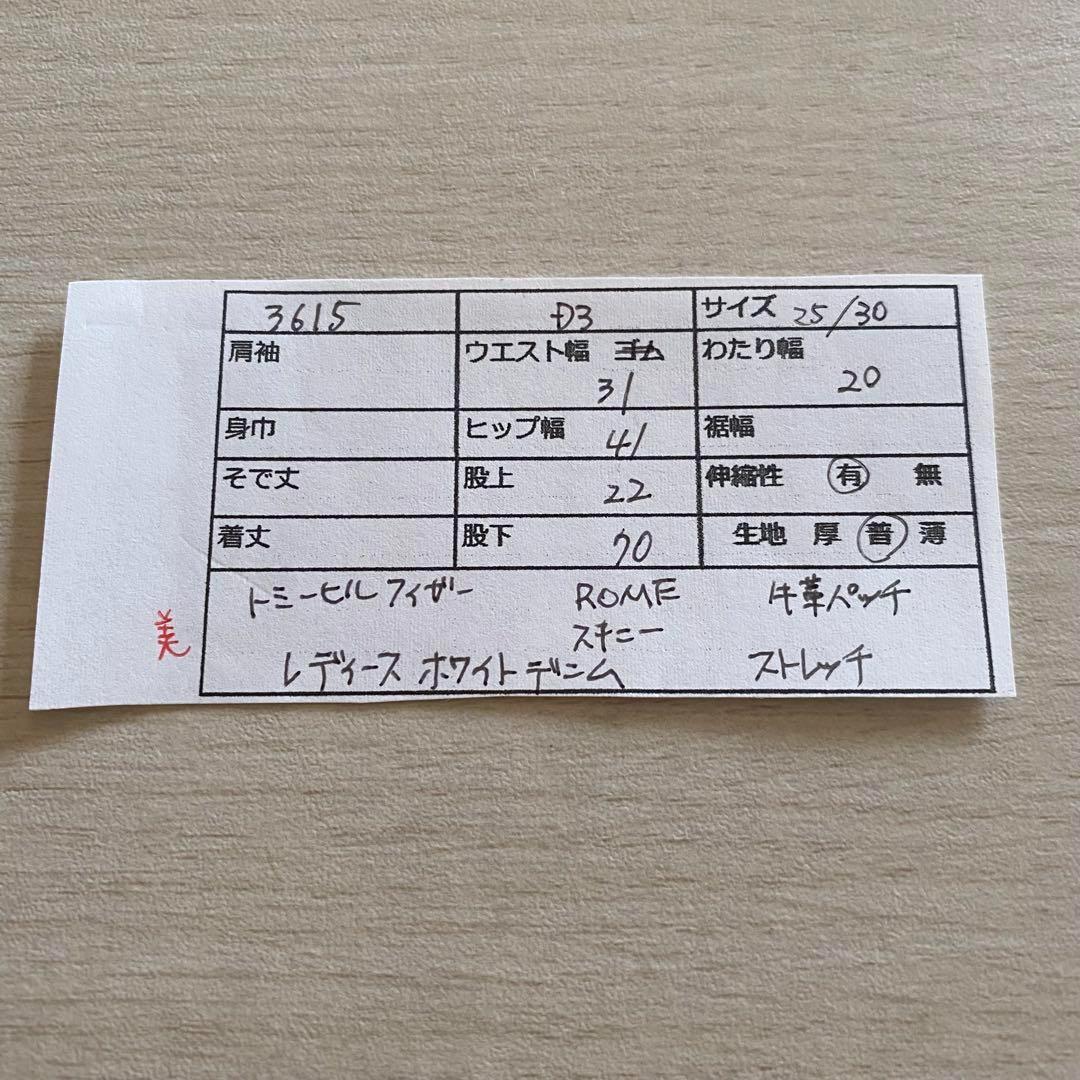 3615 D3 サイズ 25/30
肩袖 ウエスト幅 ゴム 31 わたり幅 20
身巾 ヒップ幅 41 裾幅
そで丈 股上 22 伸縮性 有 無
着丈 股下 70 生地 厚 普 薄
トミーヒルフィガー ROME 牛革パッチ
スキニー
美
レディース ホワイトデニム ストレッチ